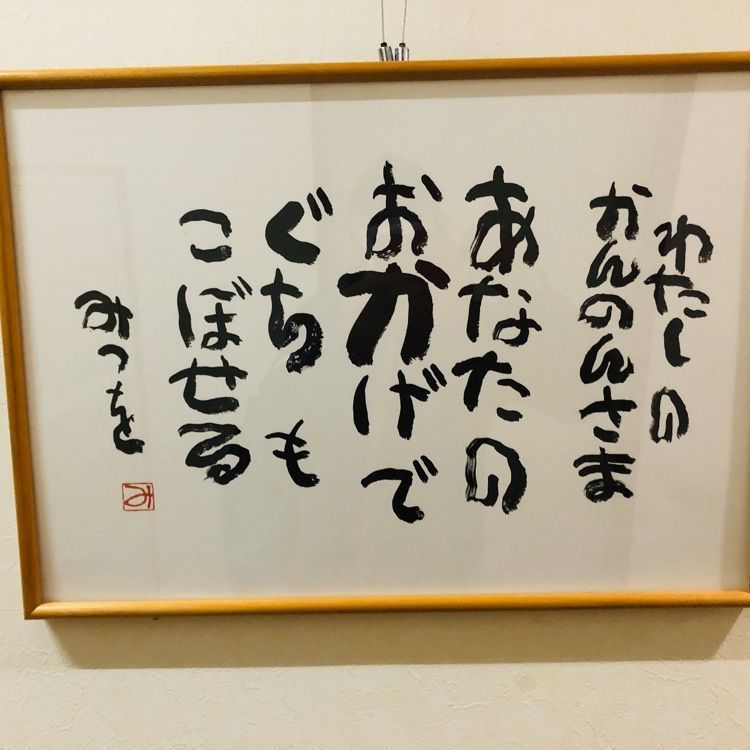 わたしの
かんのんさま
あなたの
おかげで
ぐちも
こぼせる
みつを
み